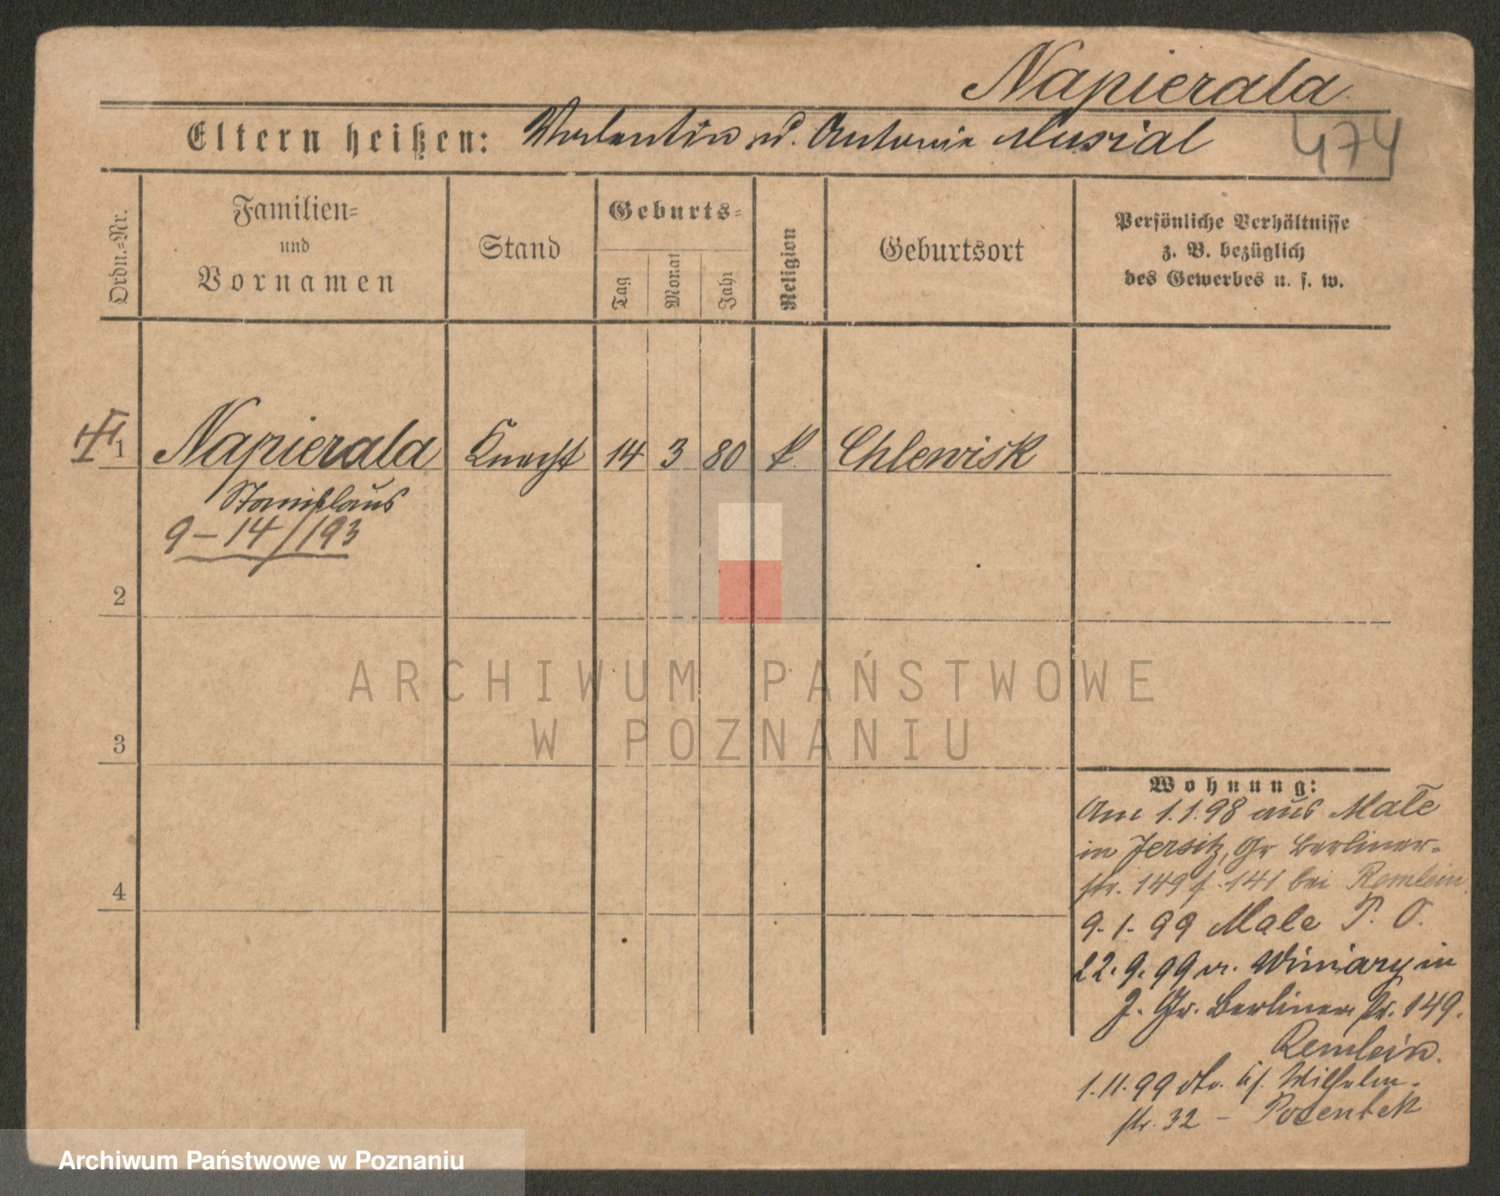 Napierala
Eltern heißen: Valentin u. Antonie Musial
474
Ordn.-Nr.
Familien-
und
Vornamen
Stand
Geburts-
Tag
Monat
Jahr
Religion
Geburtsort
Persönliche Verhältnisse
z. B. bezüglich
des Gewerbes u. s. w.
1 Napierala Knecht 14 3 80 k. Chlewisk
Stanislaus
9-14/193
2
3
4
ARCHIWUM PAŃSTWOWE
W POZNANIU
Wohnung:
Am 1.1.98 aus Male
in Jersitz, Gr Berliner-
str. 149 141 bei Remlein
9.1.99 Male P. O.
22.9.99 v. Winiary in
J. Gr. Berliner str. 149.
Remlein.
1.11.99 Wilhelm-
str. 32 - Posentek
Archiwum Państwowe w Poznaniu